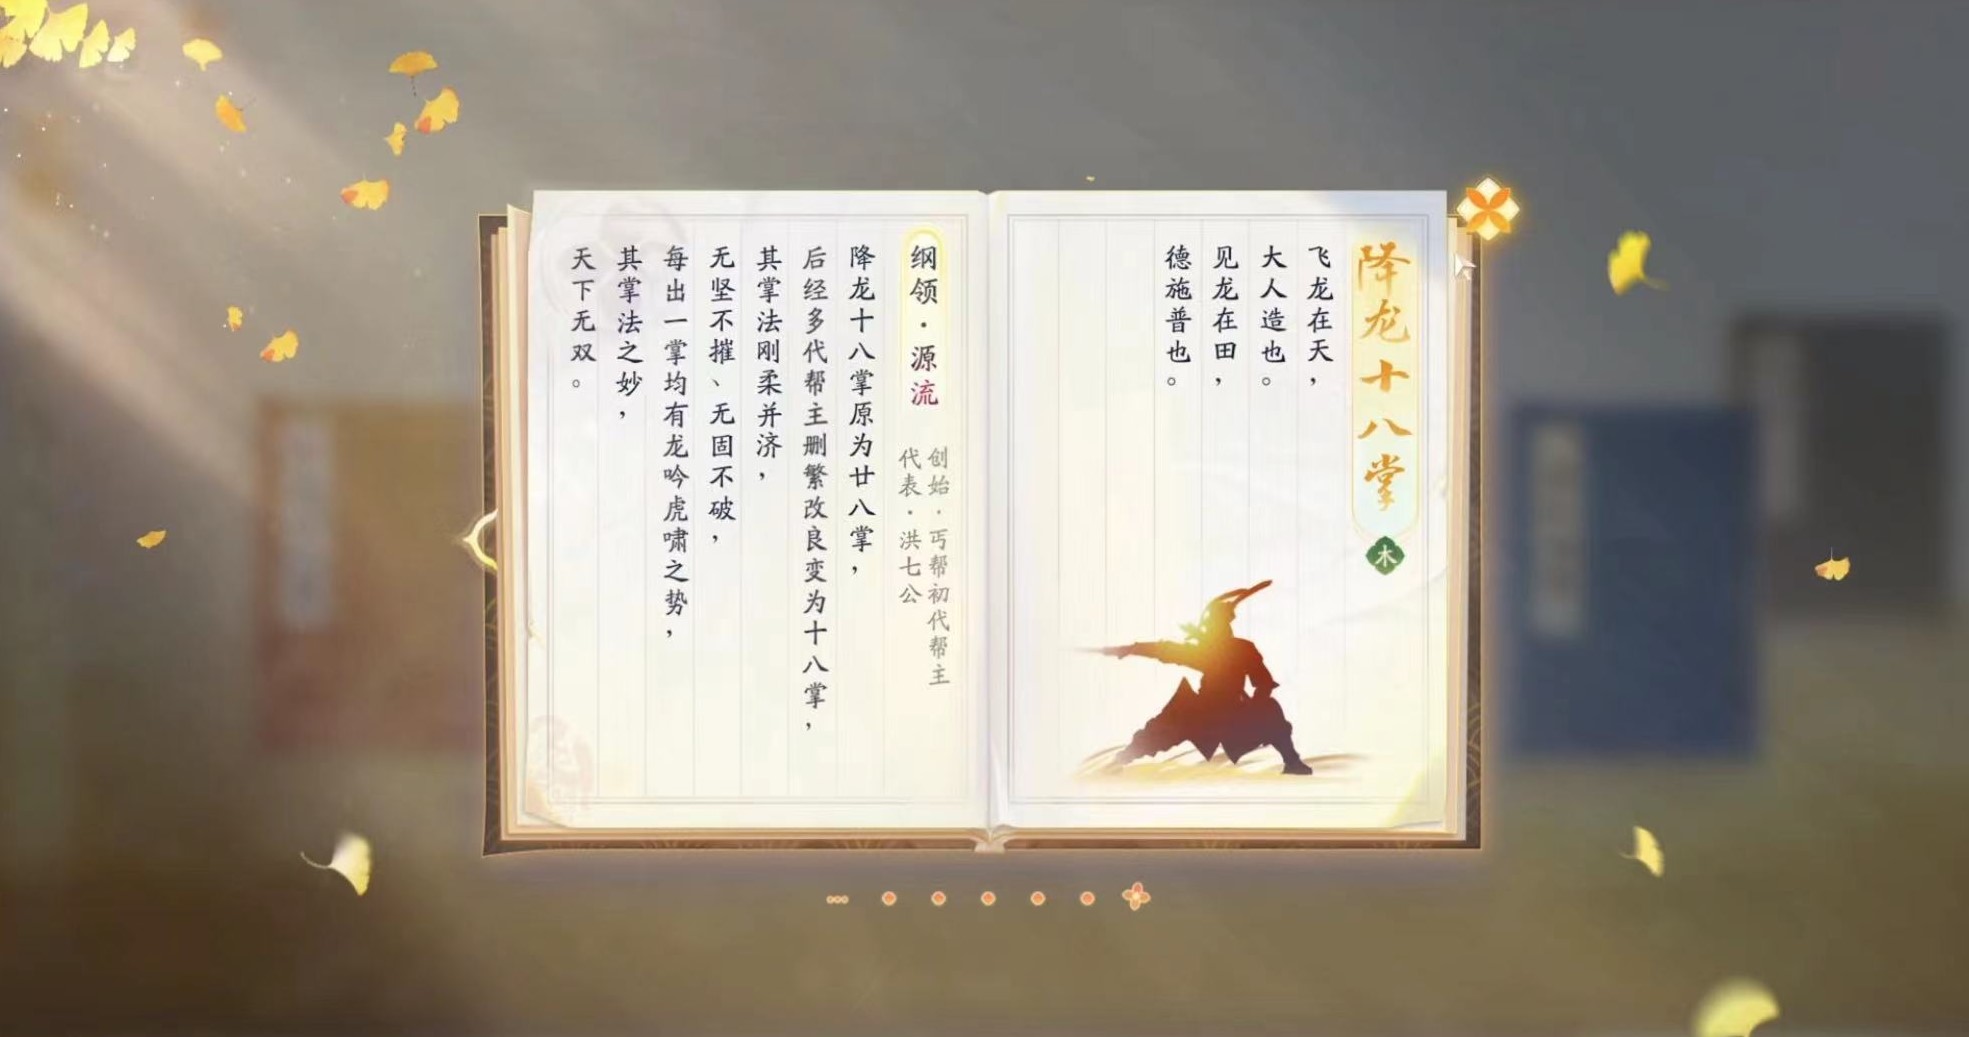 降龙十八掌
木
飞龙在天，
大人造也。
见龙在田，
德施普也。
纲领·源流
创始·丐帮初代帮主
代表·洪七公
降龙十八掌原为廿八掌，
后经多代帮主删繁改良变为十八掌，
其掌法刚柔并济，
无坚不摧、无固不破，
每出一掌均有龙吟虎啸之势，
其掌法之妙，
天下无双。